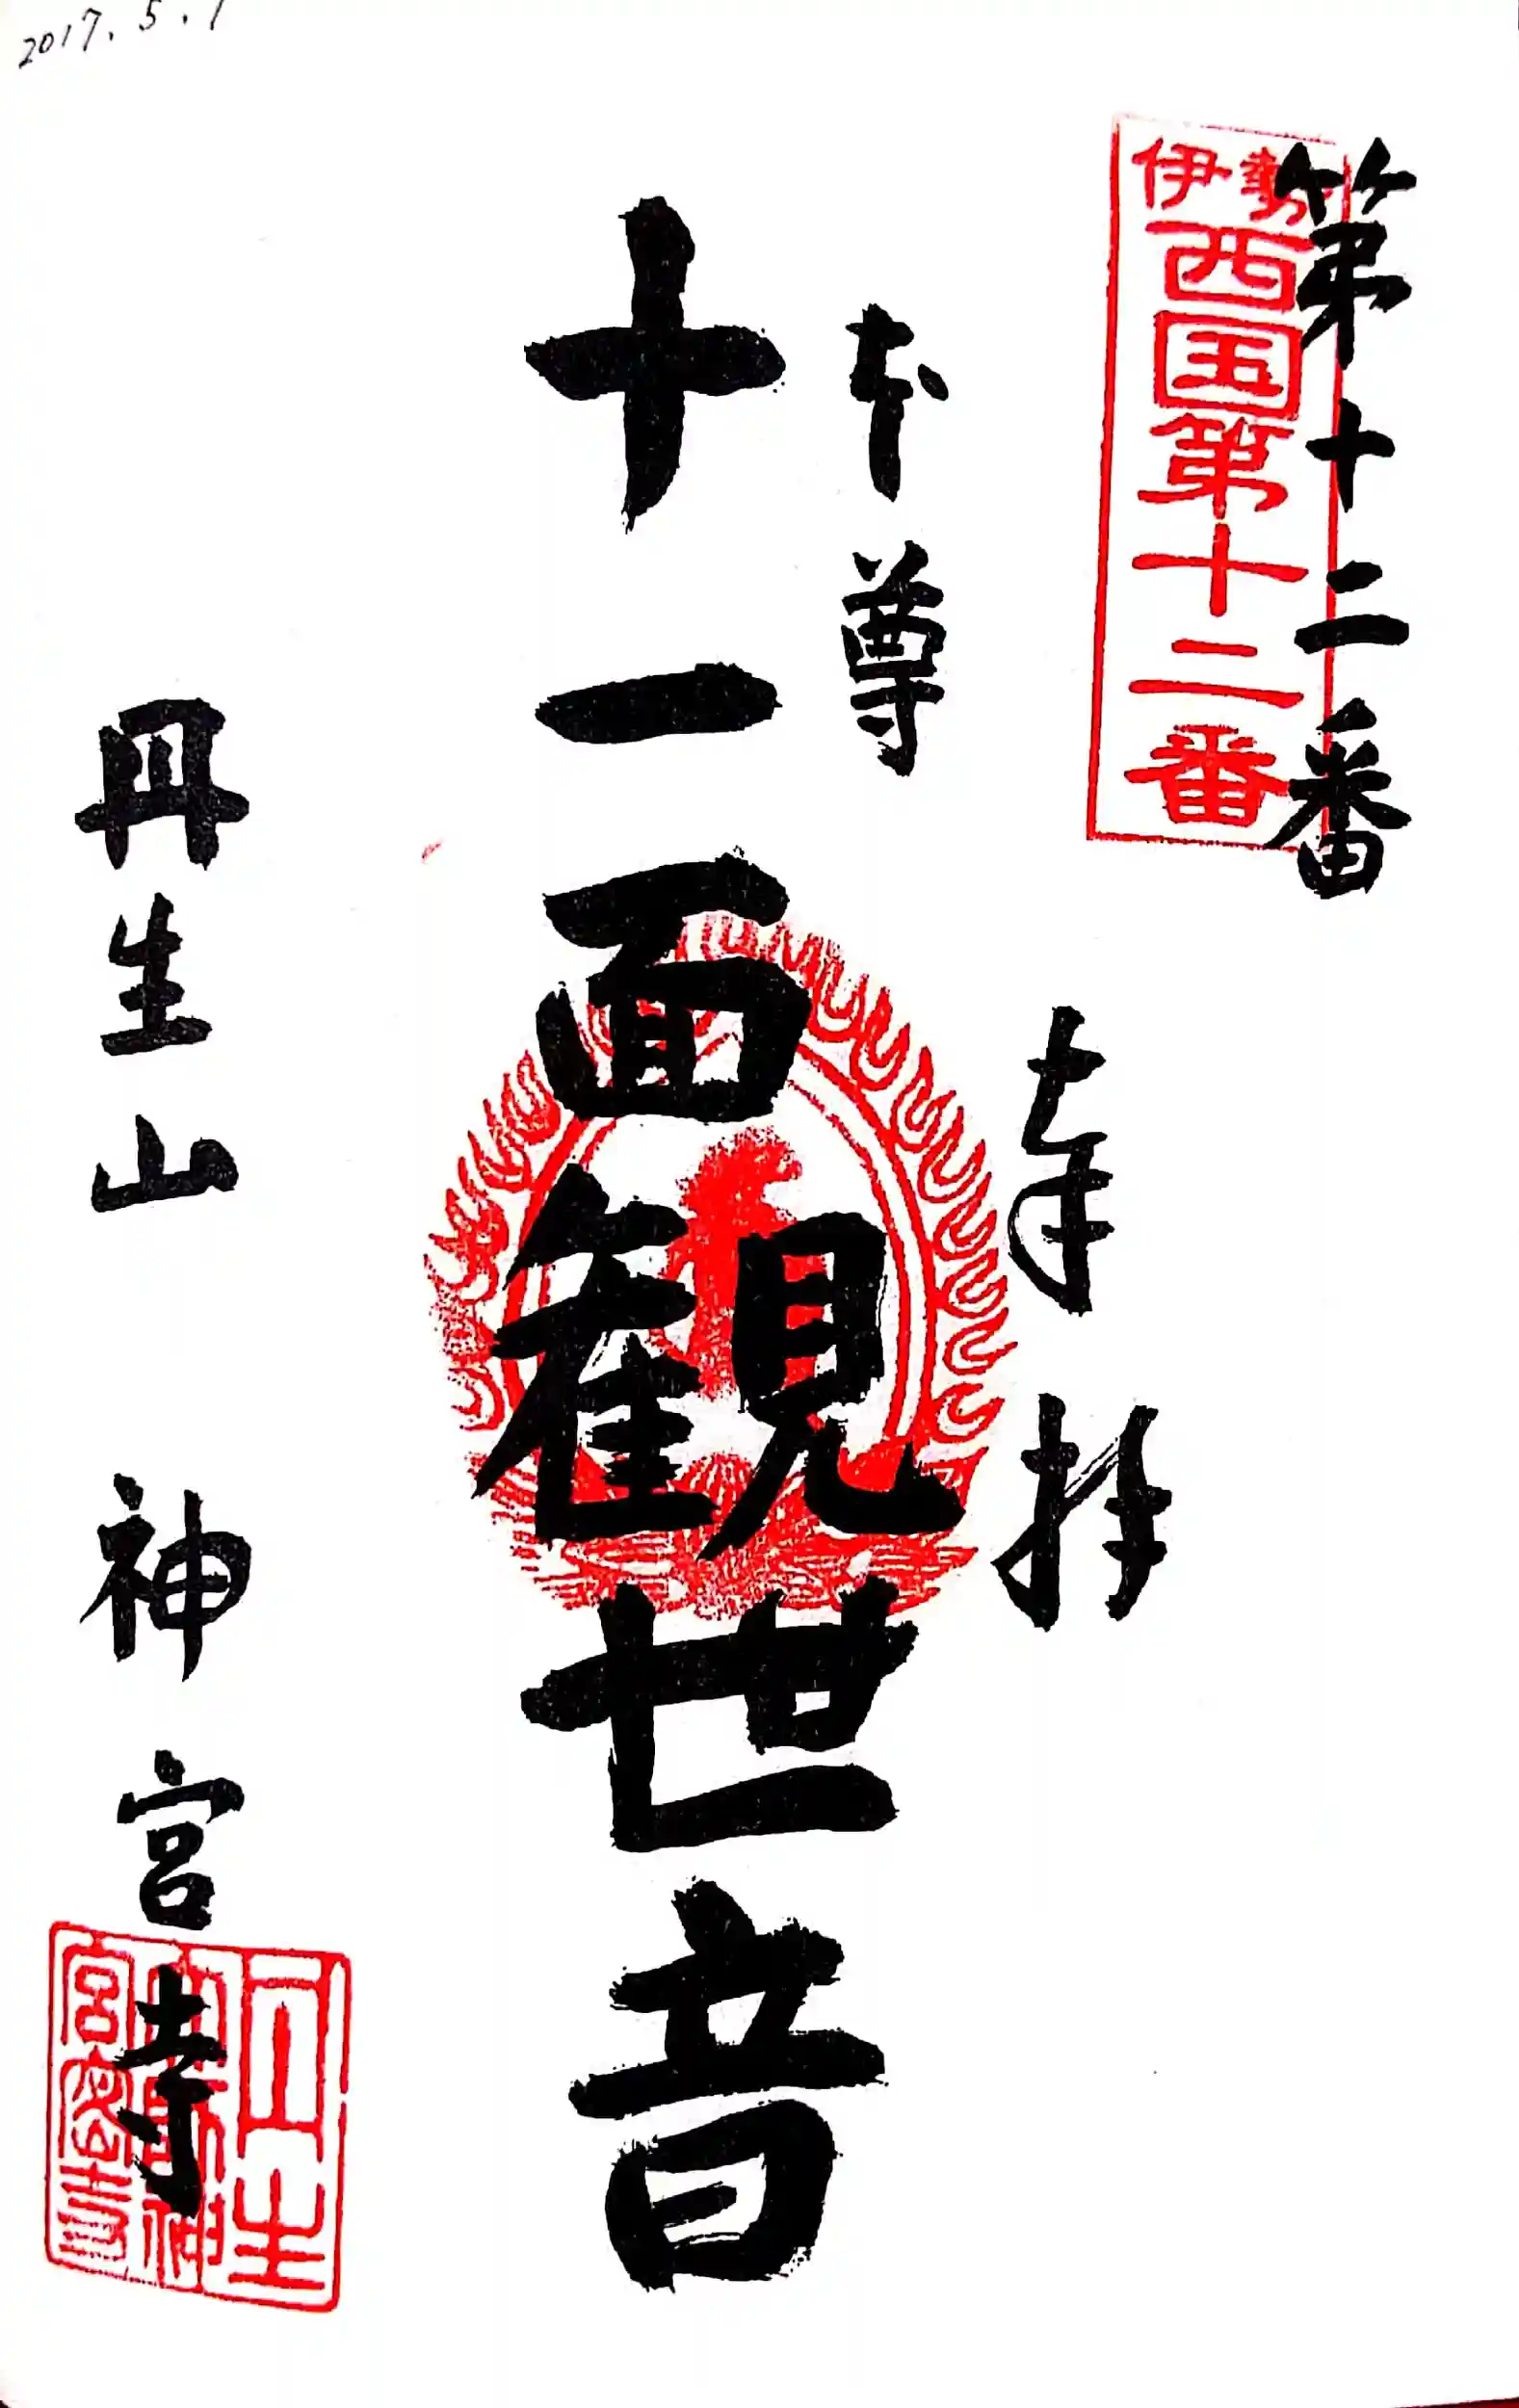 2017.5.1
第十二番
伊勢西国第十二番
奉拝
本尊
十一面観世音
丹生山 神宮寺